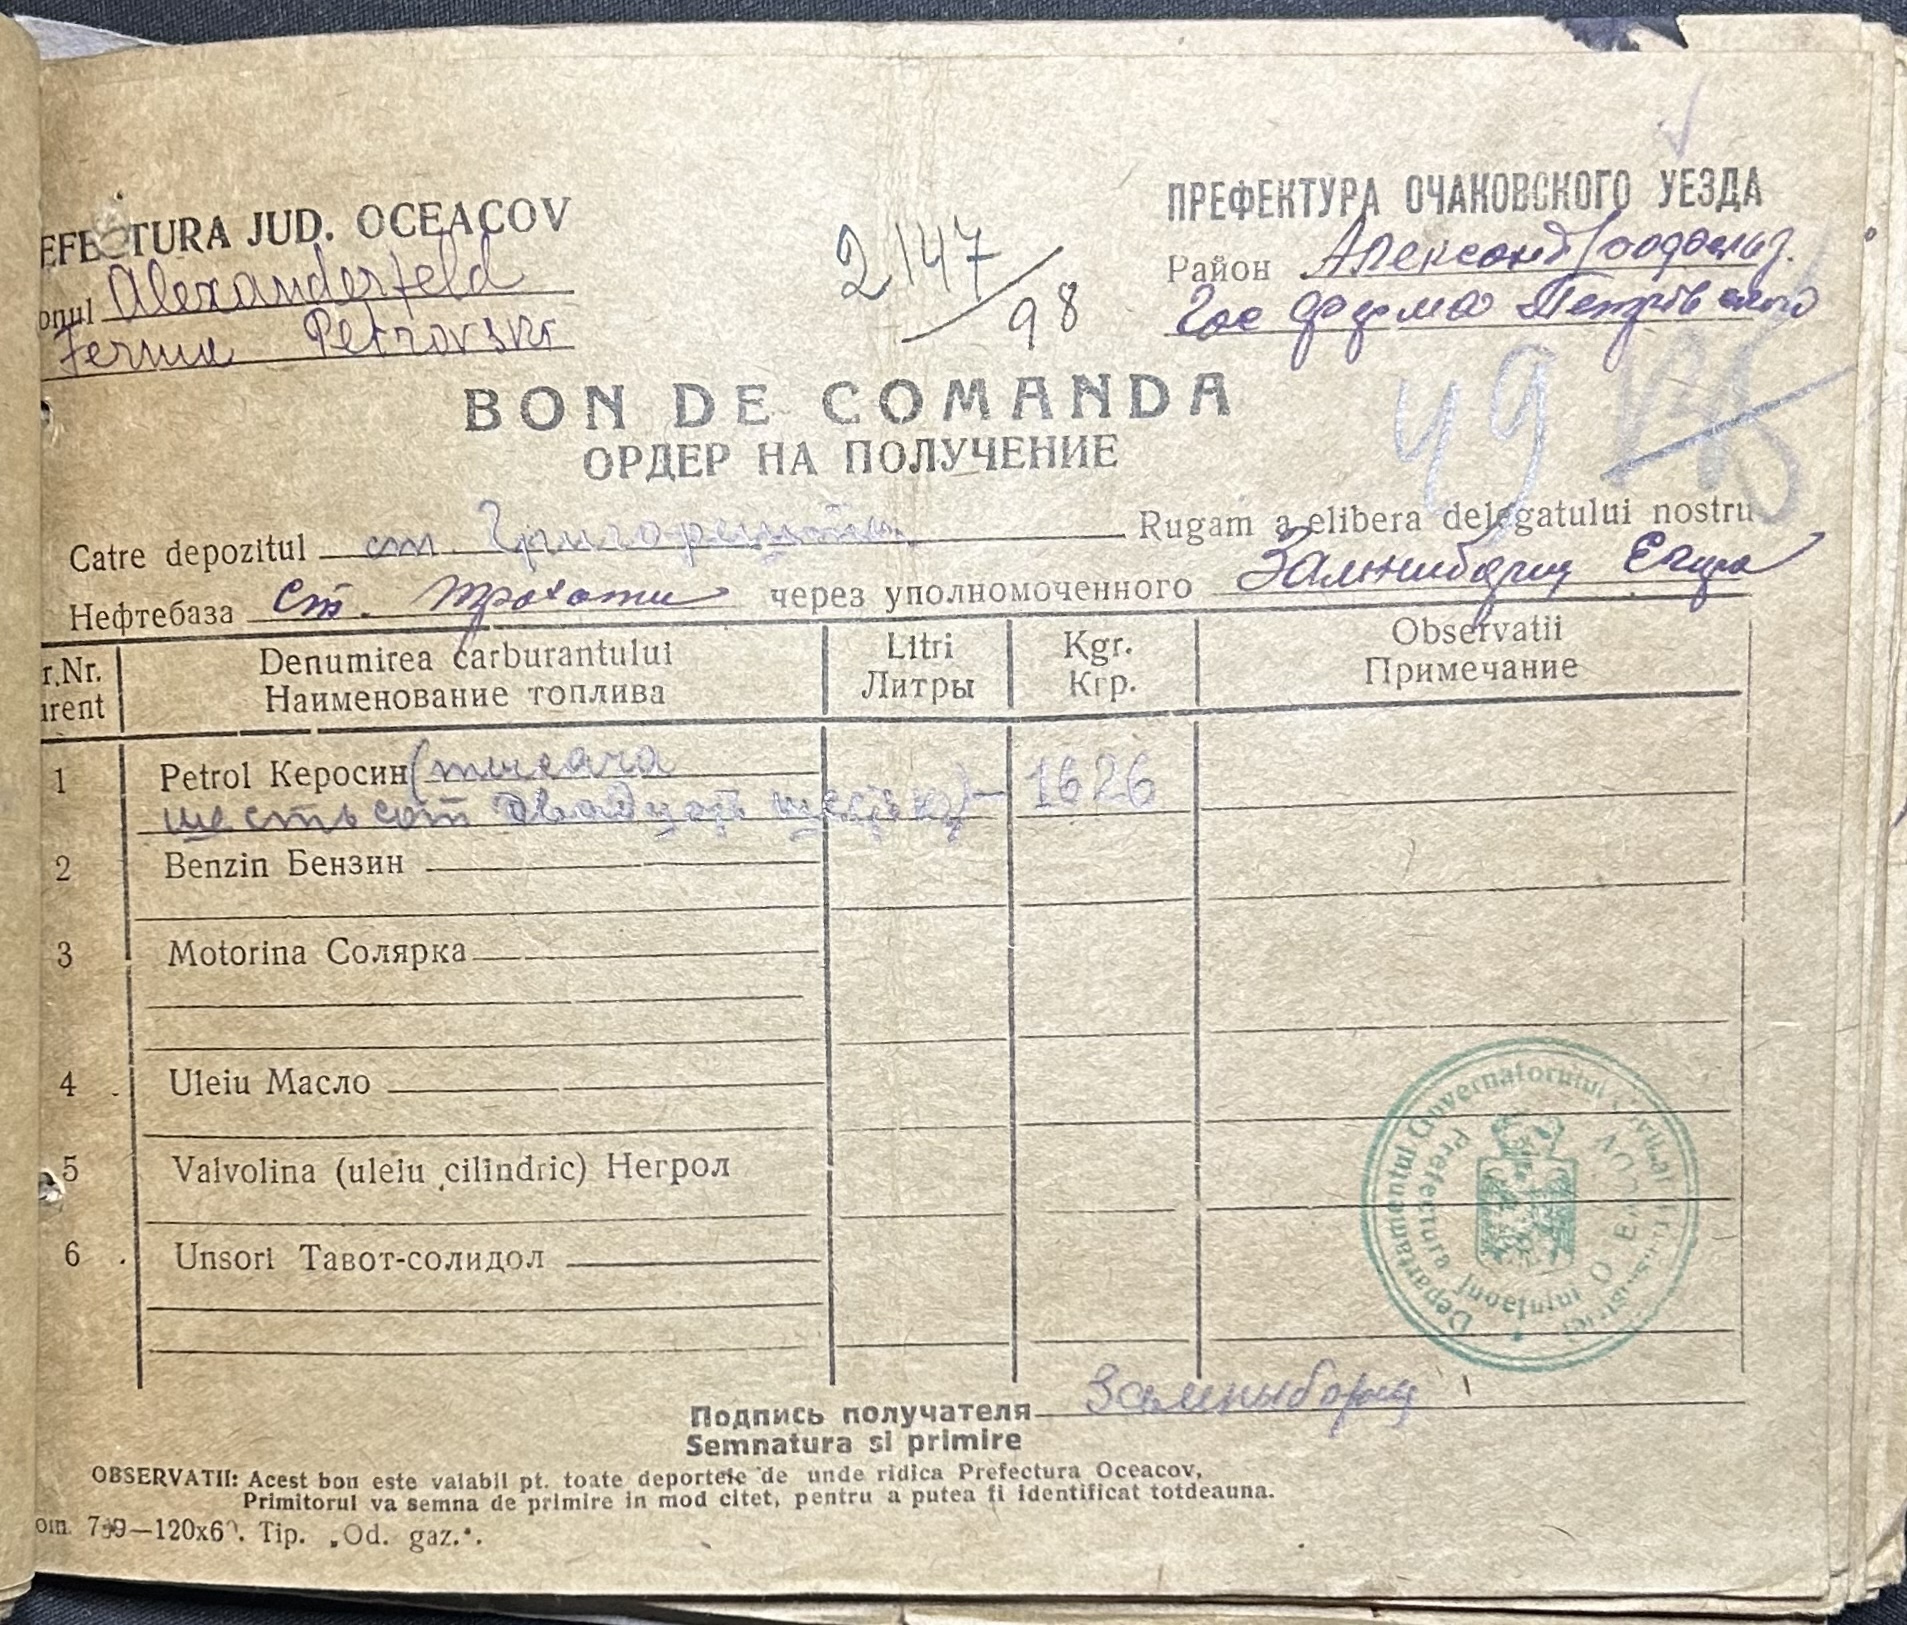 EFECTURA JUD. OCEACOV
onul Alexanderfeld
Ferma Petrovski
2147/98
ПРЕФЕКТУРА ОЧАКОВСКОГО УЕЗДА
Район
Гос ферма Петрівского
49
BON DE COMANDA
ОРДЕР НА ПОЛУЧЕНИЕ
Catre depozitul ст. Rugam a elibera delegatului nostru
Нефтебаза ст. через уполномоченного
r.Nr. Denumirea carburantului Litri Kgr. Observatii
urent Наименование топлива Литры Кгр. Примечание
1 Petrol Керосин (тысяча
шестьсот двадцать шесть кг) 1626
2 Benzin Бензин
3 Motorina Солярка
4 Uleiu Масло
5 Valvolina (uleiu cilindric) Негрол
6 Unsori Тавот-солидол
Departamentul Guvernatorului Civil al Transnistriei
Prefectura Județului OCEACOV
Подпись получателя Замныборщ
Semnatura si primire
OBSERVATII: Acest bon este valabil pt. toate deportele de unde ridica Prefectura Oceacov,
Primitorul va semna de primire in mod citet, pentru a putea fi identificat totdeauna.
om. Tip. „Od. gaz.".